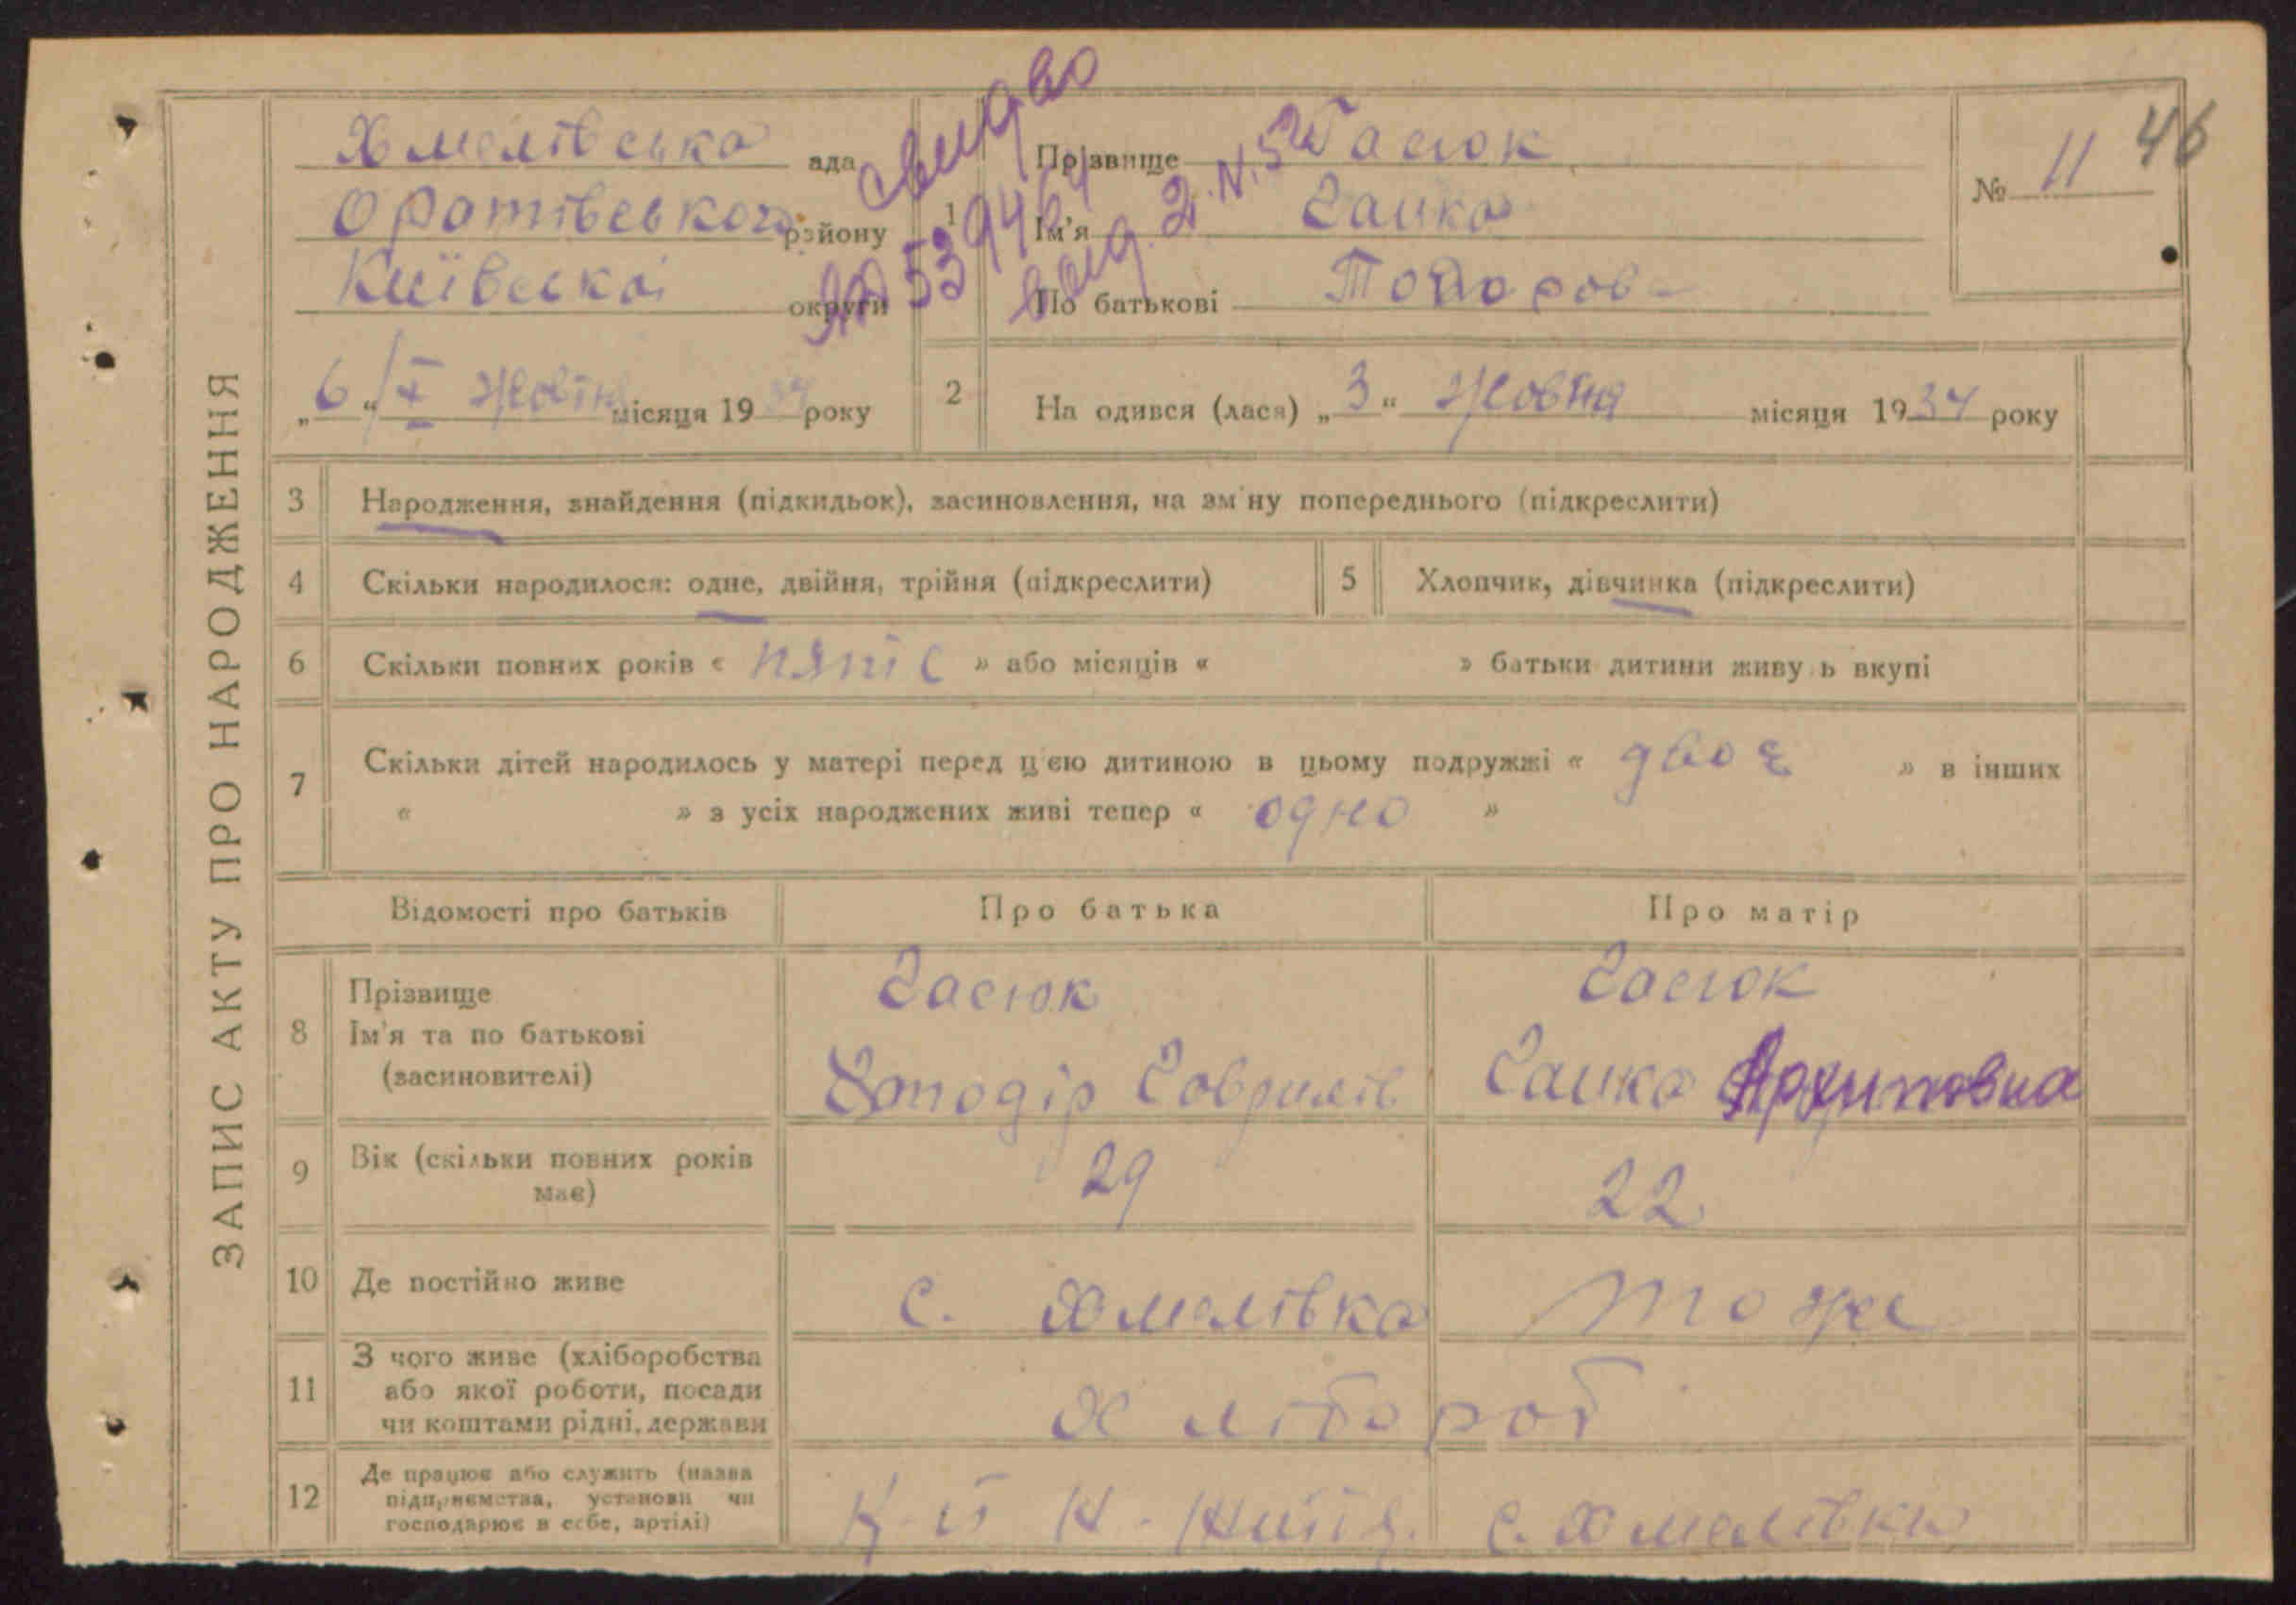 ЗАПИС АКТУ ПРО НАРОДЖЕННЯ
Хмелівська ада
Оратівського району
Київської округи
„6“ / X Жовтня місяця 1934 року
свидво
№ 11 46
1 Прізвище Гасюк
Ім'я Ганка
По батькові Тодорова
2 На одився (лася) „3“ Жовтня місяця 1934 року
3 Народження, знайдення (підкидьок), засиновлення, на зм ну попереднього (підкреслити)
4 Скільки народилося: одне, двійня, трійня (підкреслити)
5 Хлопчик, дівчинка (підкреслити)
6 Скільки повних років « пяті » або місяців « » батьки дитини живу ь вкупі
7 Скільки дітей народилось у матері перед цією дитиною в цьому подружжі « двоє » в інших
« » з усіх народжених живі тепер « одно »
Відомості про батьків Про батька Про матір
8 Прізвище Гасюк Гасюк
Ім'я та по батькові Гаврилів Ганка Архиповна
(засиновителі)
9 Вік (скільки повних років має) 29 22
10 Де постійно живе с. Хмелівка тоже
11 З чого живе (хліборобства або якої роботи, посади чи коштами рідні, держави Хлібороб
12 Де працює або служить (назва підприємства, установи чи господарює в себе, артілі) с. Хмелівки